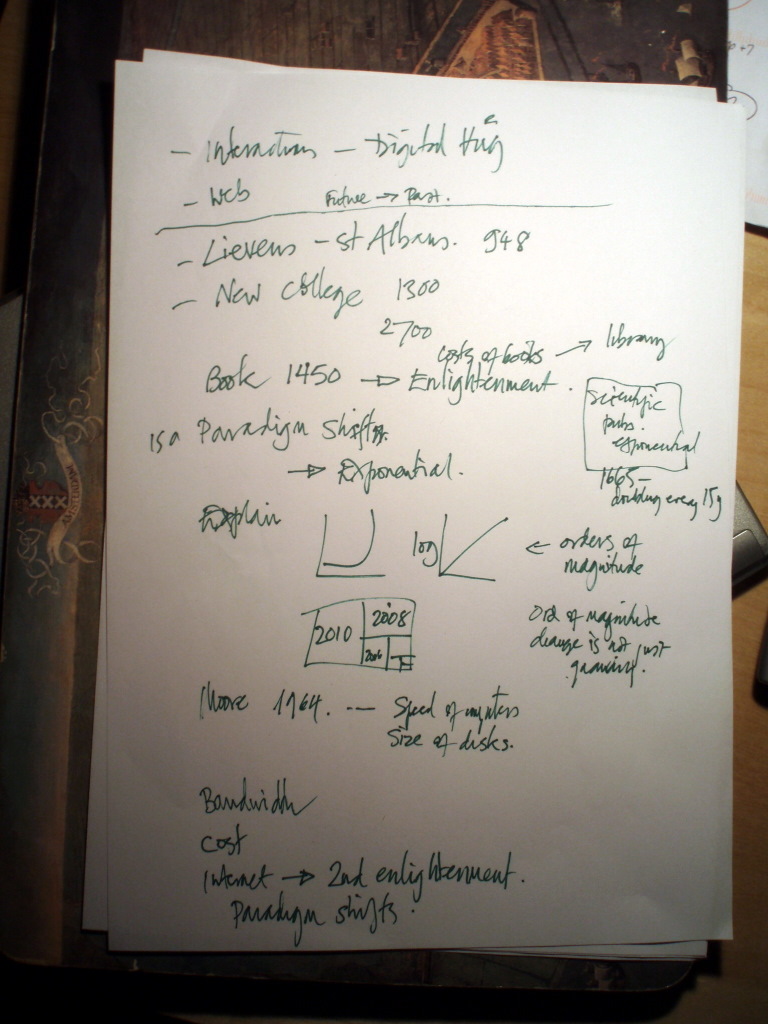 - Interactions - Digital Hug
- Web Future → Past.
- Lievens - St Albans. 948
- New College 1300
2700
costs of books → library
Book 1450 → Enlightenment.
Scientific pubs. exponential
is a Paradigm Shift
→ Exponential.
1665 -
doubling every 15y
Explain
log
← orders of
magnitude
2010 2008
2006
Ord of magnitude
change is not just
Moore 1964. --- Speed of
Size of disks.
Bandwidth
Cost
Internet → 2nd enlightenment.
Paradigm shifts.
XXX
AMSTERDAM